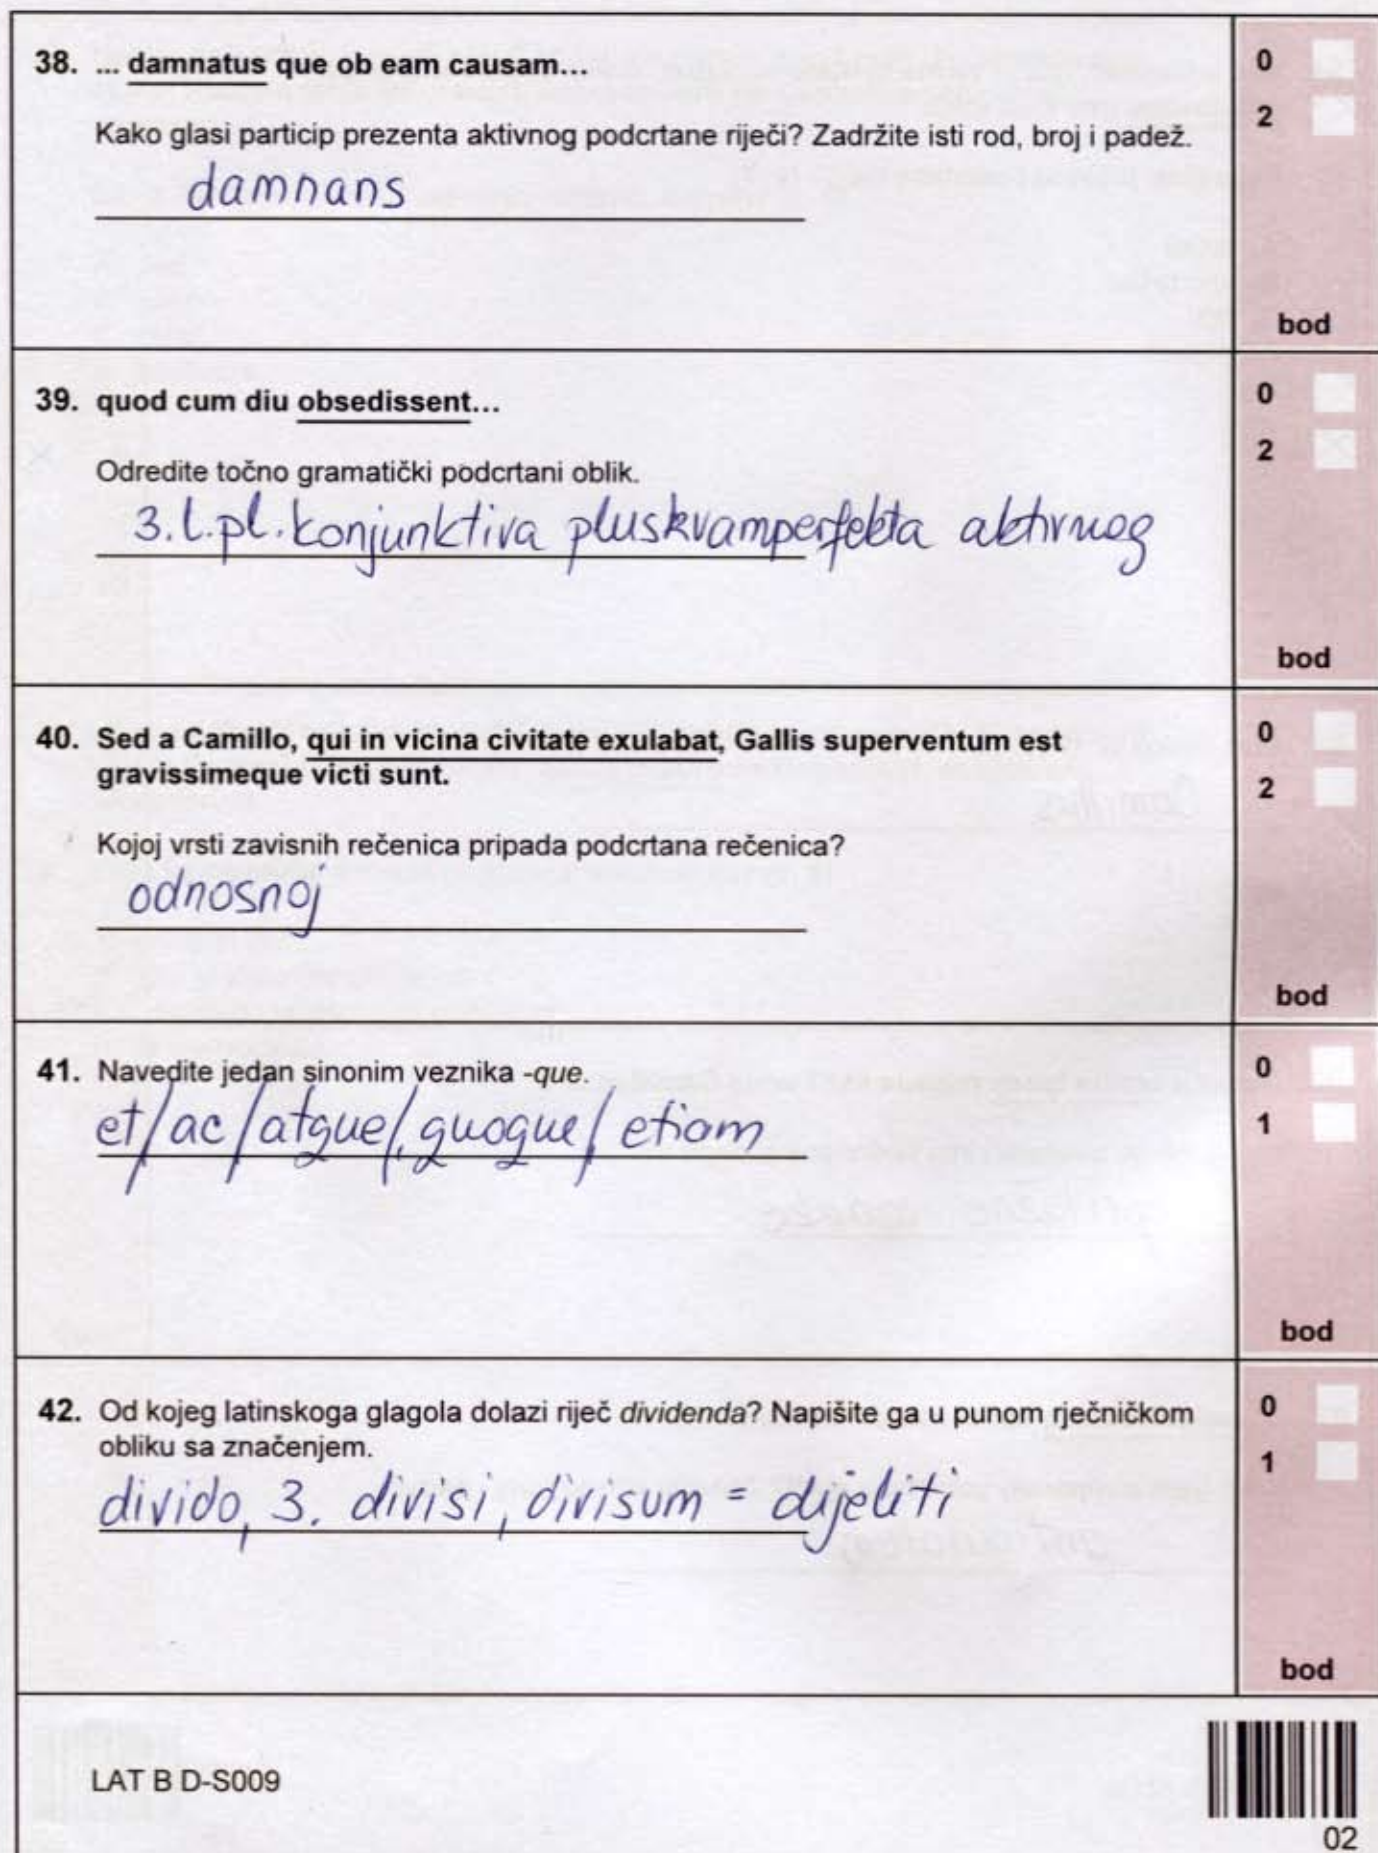 38. ... damnatus que ob eam causam...
0
2
Kako glasi particip prezenta aktivnog podcrtane riječi? Zadržite isti rod, broj i padež.
damnans
bod
39. quod cum diu obsedissent...
0
2
Odredite točno gramatički podcrtani oblik.
3. l. pl. konjunktiva pluskvamperfekta aktivnog
bod
40. Sed a Camillo, qui in vicina civitate exulabat, Gallis superventum est
gravissimeque victi sunt.
0
2
Kojoj vrsti zavisnih rečenica pripada podcrtana rečenica?
odnosnoj
bod
41. Navedite jedan sinonim veznika -que.
0
1
et/ac/atque/quoque/etiam
bod
42. Od kojeg latinskoga glagola dolazi riječ dividenda? Napišite ga u punom rječničkom
obliku sa značenjem.
0
1
divido, 3. divisi, divisum = dijeliti
bod
LAT B D-S009
02